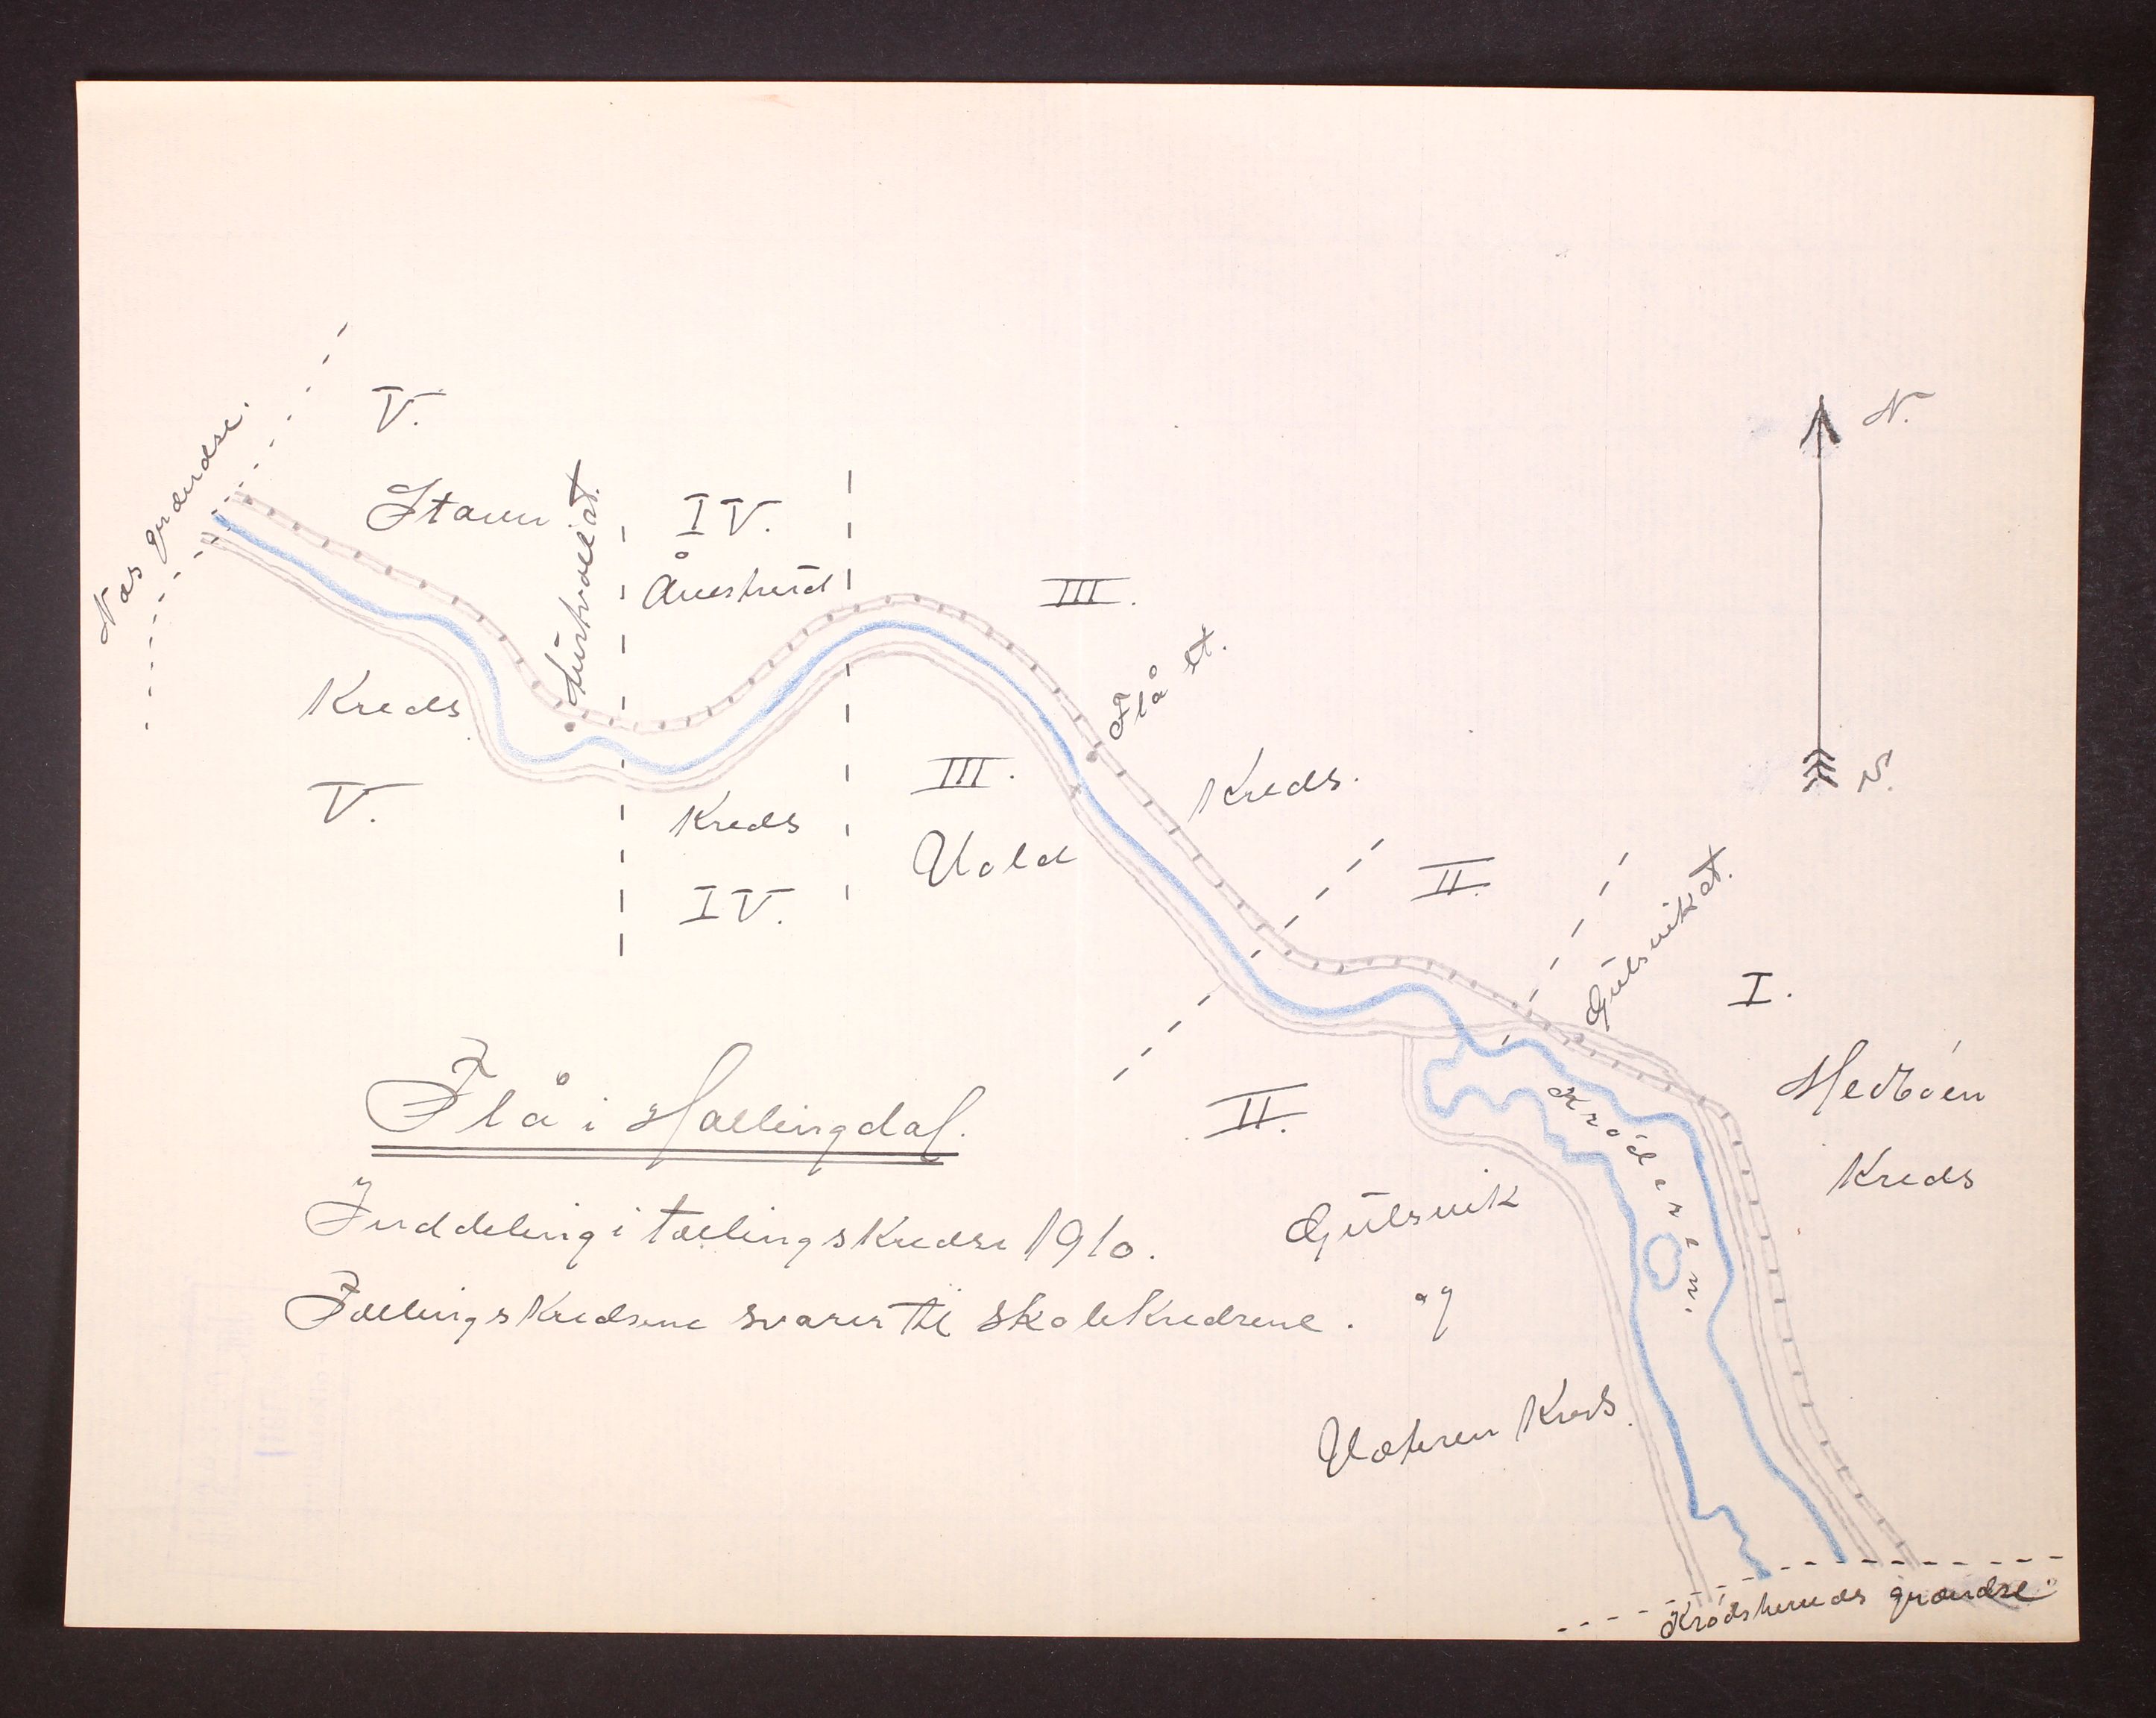 Næs grændse.
V.
Stavn
Kreds
V.
IV.
Åvestrud
Kreds
IV.
III.
Flå st.
Kreds.
III.
Vold
N.
II.
Gülsvik st.
I.
Medbøen
Kreds
II.
Gülsvik
og
Kreds.
Krøderen.
Flå i Hallingdal.
Inddeling i tællingskredse 1910.
Tællingskredsene svarer til skolekredsene.
Krødsheruds grændse.